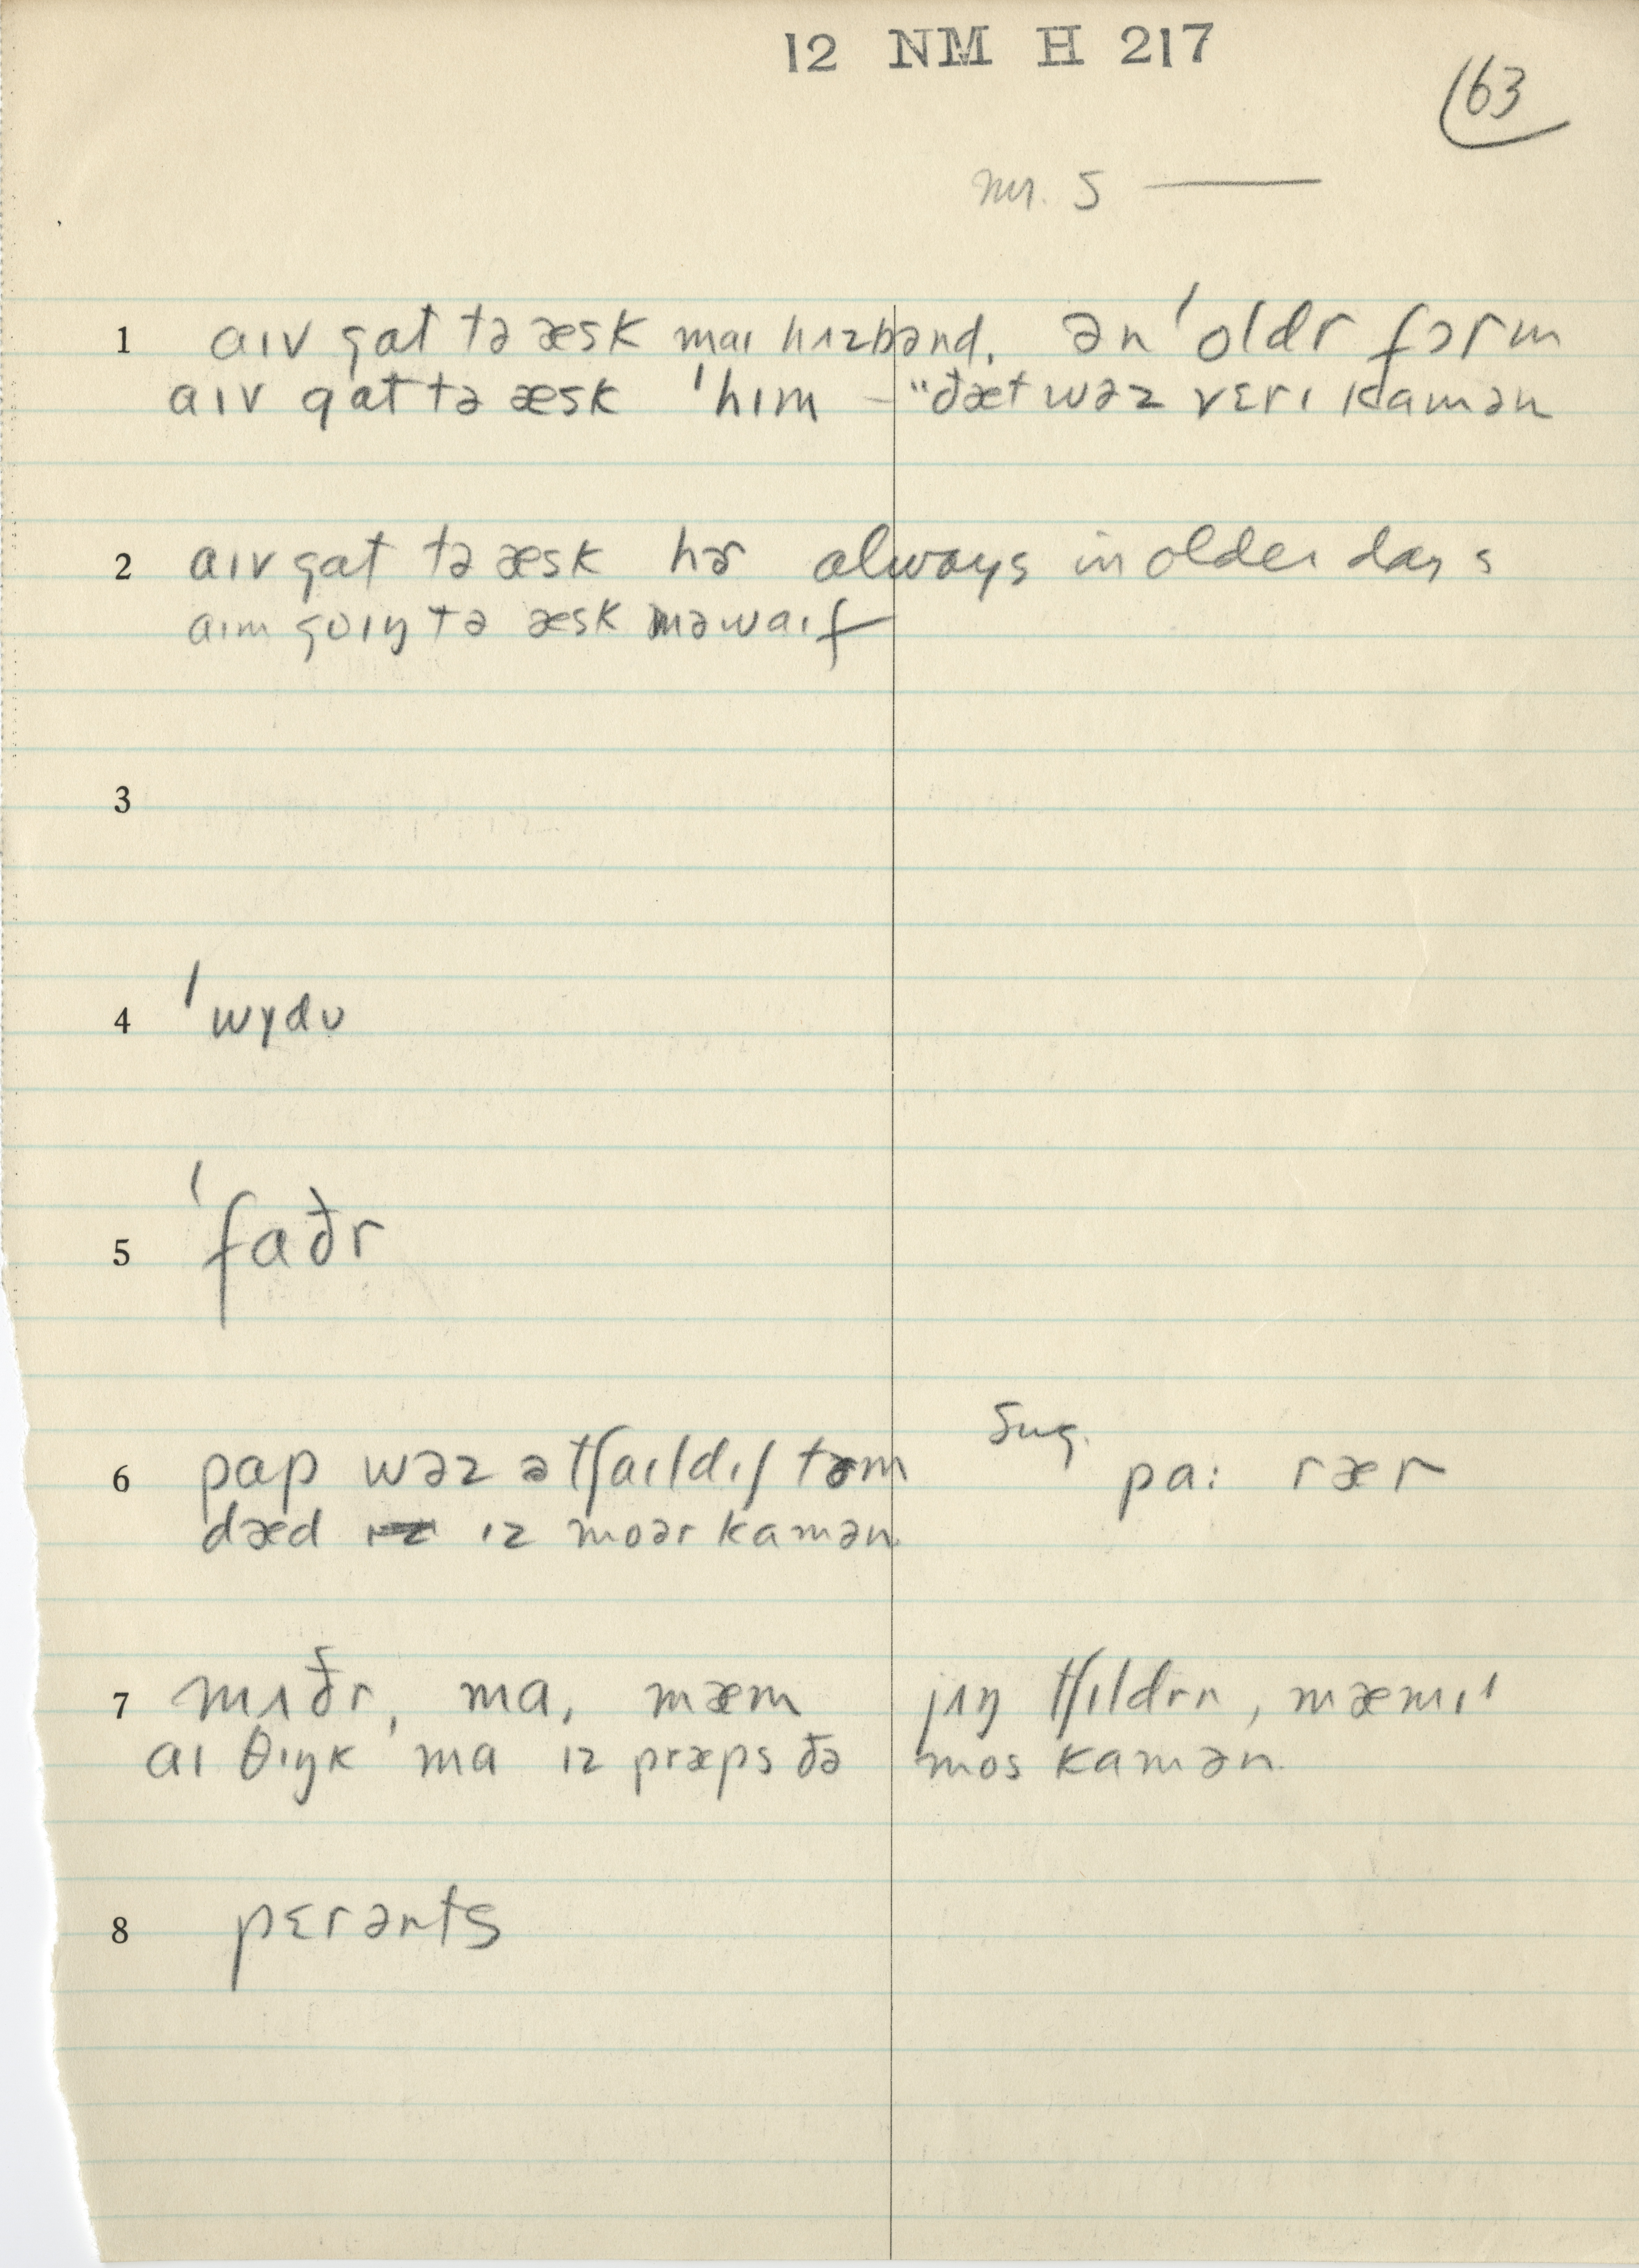 12 NM H 217
163
Mr. S ——
1 aɪv gat tə æsk maɪ hʌzbənd. ən ˈoldr fɔrm
aɪv gat tə æsk ˈhɪm – "ðæt wəz vɛrɪ kamən
2 aɪv gat tə æsk hɚ always in older days
aɪm goɪŋ tə æsk məwaɪf
3
4 ˈwɪdʊ
5 ˈfaðr
6 pap wəz ə tʃaɪldɪʃ tɚm Sug. pa: rær
dæd ɪz moər kamən
7 mʌðr, ma, mæm jʌŋ tʃɪldrn, mæmɪ
aɪ θɪŋk ma ɪz præps ðə mos kamən.
8 pɛrənts